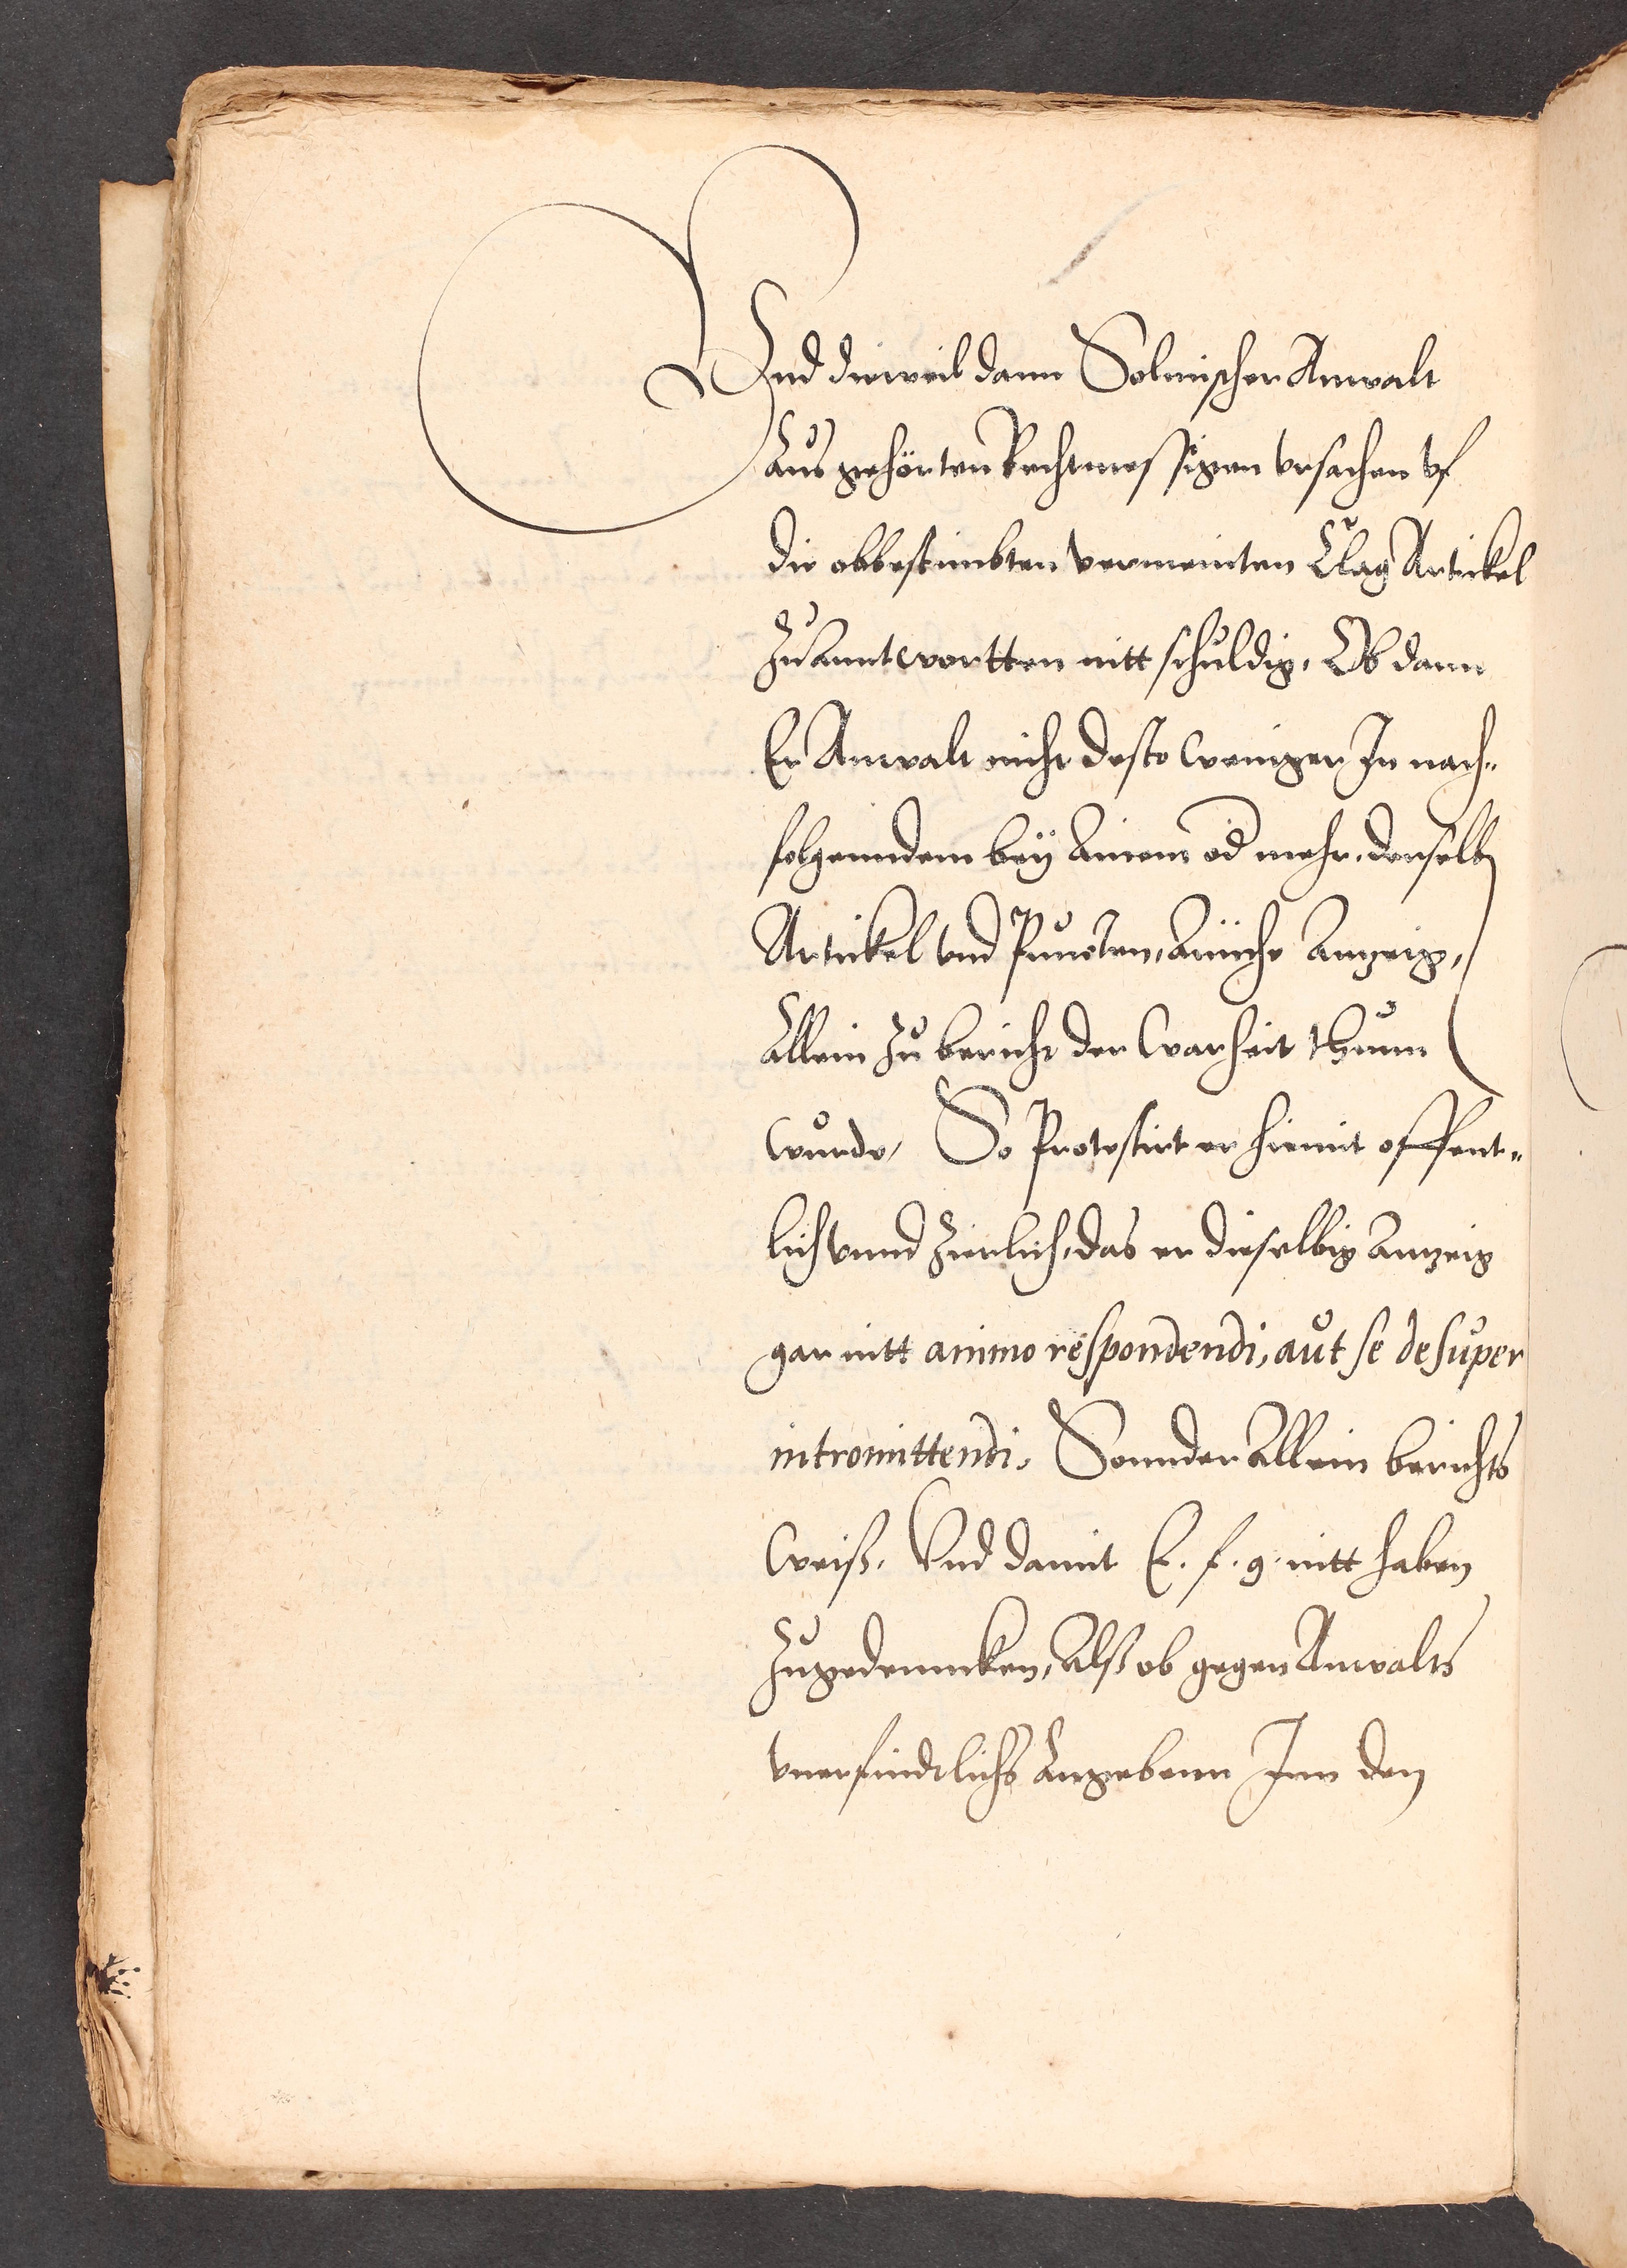 Vnd dieweil dann Solmischer Anwalt
Aus gehörten Rechtmessigen vrsachen vf
die obbestimbten vermeinten Clag Artickel
Zu Anntwortten nitt schuldig, Ob dann
Er Anwalt nicht desto weniger In nach„
folgenndem bey Ainem od mehr derselben
Artickel vnd Puncten, Ainiche Anzeig,
Allein zu bericht der warheit thuun
wurde, So Protestirt er hiemit offent„
lich vnnd Zierlich, das er dieselbig Anzeig
gar nitt animo respondendi, aut se desuper
intromittendi, Sonnder Allein berichts
weiß, Vnd damit E. f. g. nitt haben
Zugedenncken, Alß ob gegen Anwalts
vnerfindtlichs Angebenn Inn den